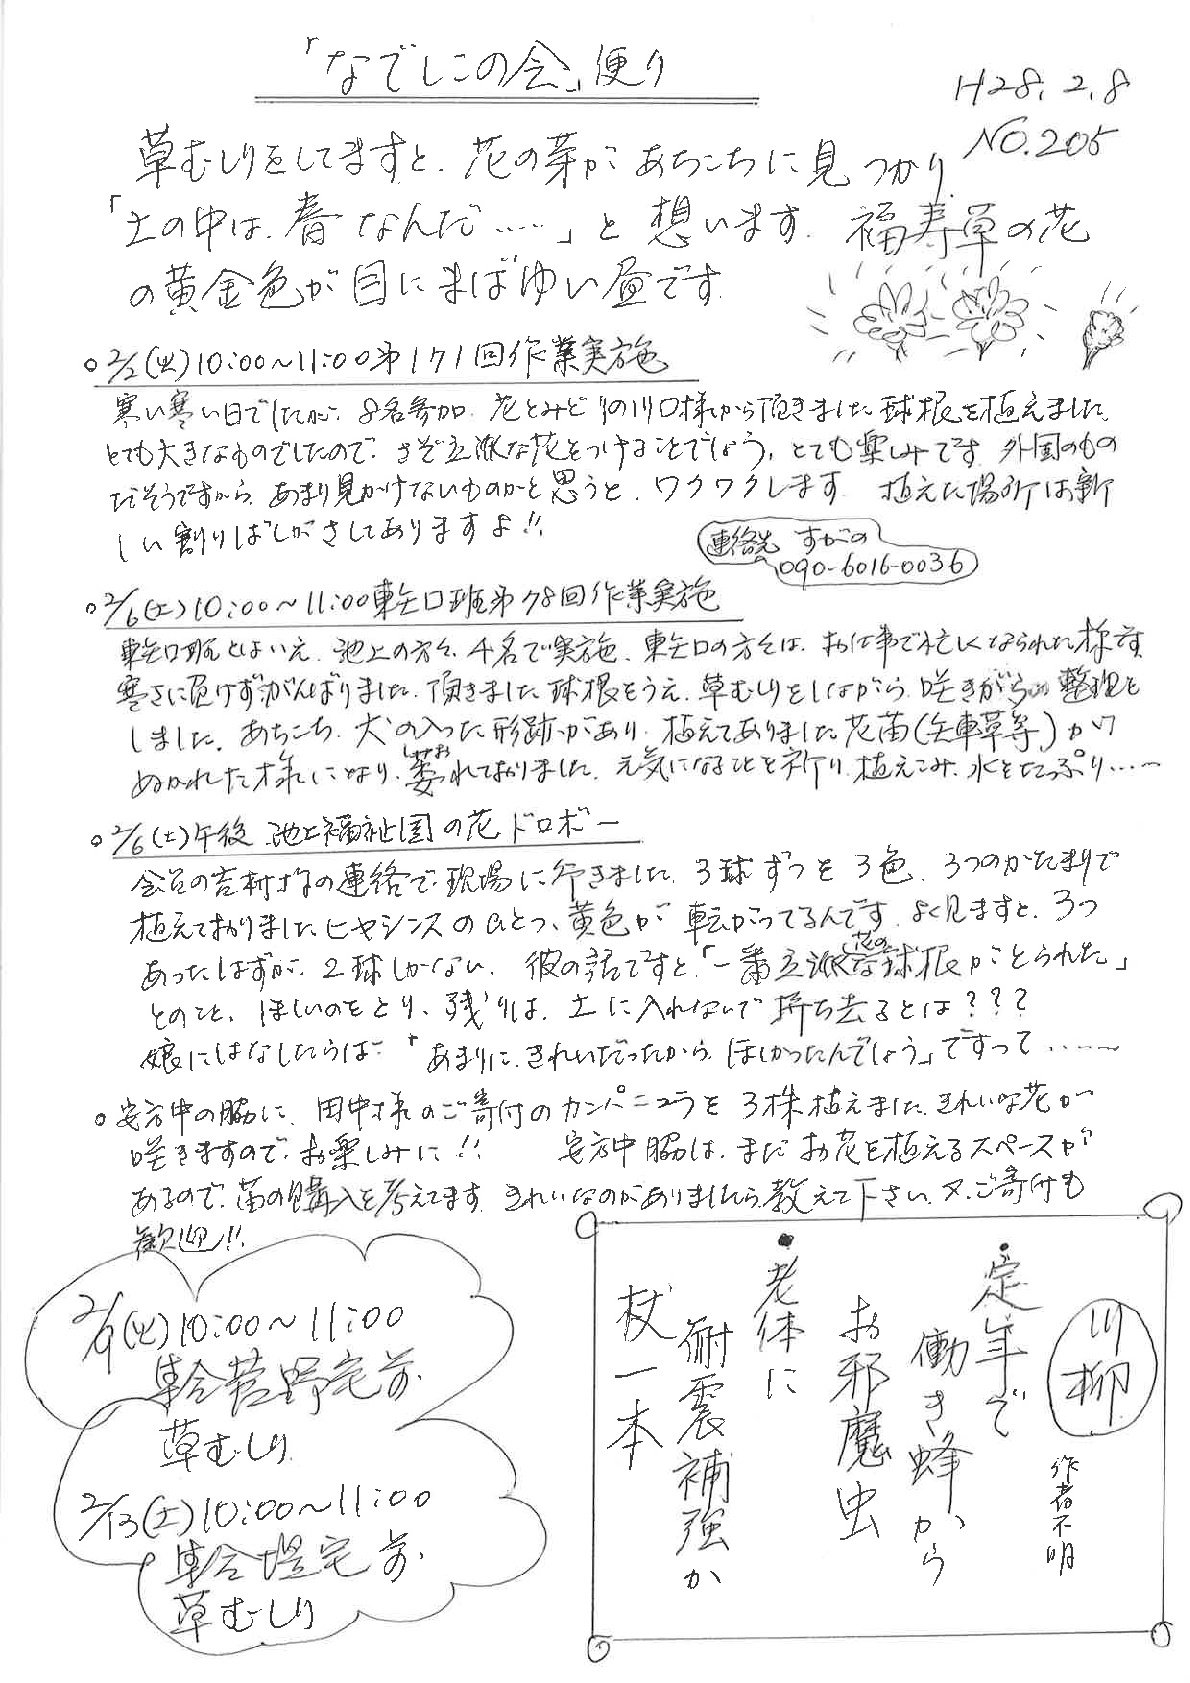 「なでしこの会」便り
H28.2.8
NO.205
草むしりをしてますと、花の芽があちこちに見つかり
「土の中は、春なんだ……」と想います。福寿草の花
の黄金色が目にまばゆい昼です。
○2/2(火)10:00〜11:00第171回作業実施
寒い寒い日でしたが、8名参加、花とみどりの川口様から頂きました球根を植えました。
とても大きなものでしたので、さぞ立派な花をつけることでしょう。とても楽しみです。外国のもの
だそうですから、あまり見かけないものかと思うと、ワクワクします。植えた場所は新
しい割りばしがさしてありますよ!!
連絡先 すがの
090-6016-0036
○2/6(土)10:00〜11:00東矢口班第78回作業実施
東矢口班とはいえ、池上の方々、4名で実施、東矢口の方々は、お仕事で忙しくなられた様です。
寒さに負けずがんばりました。頂きました球根をうえ、草むしりをしながら、咲きがらの整理を
しました。あちこち、犬の入った形跡があり、植えてありました花苗(矢車草等)がひ
ぬかれた様になり、萎(しお)れておりました。元気になることを祈り、植えこみ、水をたっぷり……
○2/6(土)午後 池上福祉園の花ドロボー
会員の吉村様の連絡で、現場に行きました。3球ずつを3色、3つのかたまりで
植えておりましたヒヤシンスのひとつ、黄色が転がってるんです。よく見ますと、3つ
あったはずが、2球しかない、彼の話ですと、「一番立派な花の球根がとられた」
とのこと、ほしいのをとり、残りは、土に入れないで持ち去るとは???
娘にはなしたらば、「あまりに、きれいだったから、ほしかったんでしょう」ですって……
○安方中の脇に、田中様のご寄付のカンパニュラを3株植えました。きれいな花が
咲きますので、お楽しみに!! 安方中脇は、まだお花を植えるスペースが
あるので、苗の購入を考えてます。きれいなのがありましたら、教えて下さい。又、ご寄付も
歓迎!!
2/9(火)10:00〜11:00
集合菅野宅前
草むしり
2/13(土)10:00〜11:00
集合堤宅前
草むしり
川柳
作者不明
・定年で
働き蜂から
お邪魔虫
・老体に
耐震補強か
杖一本